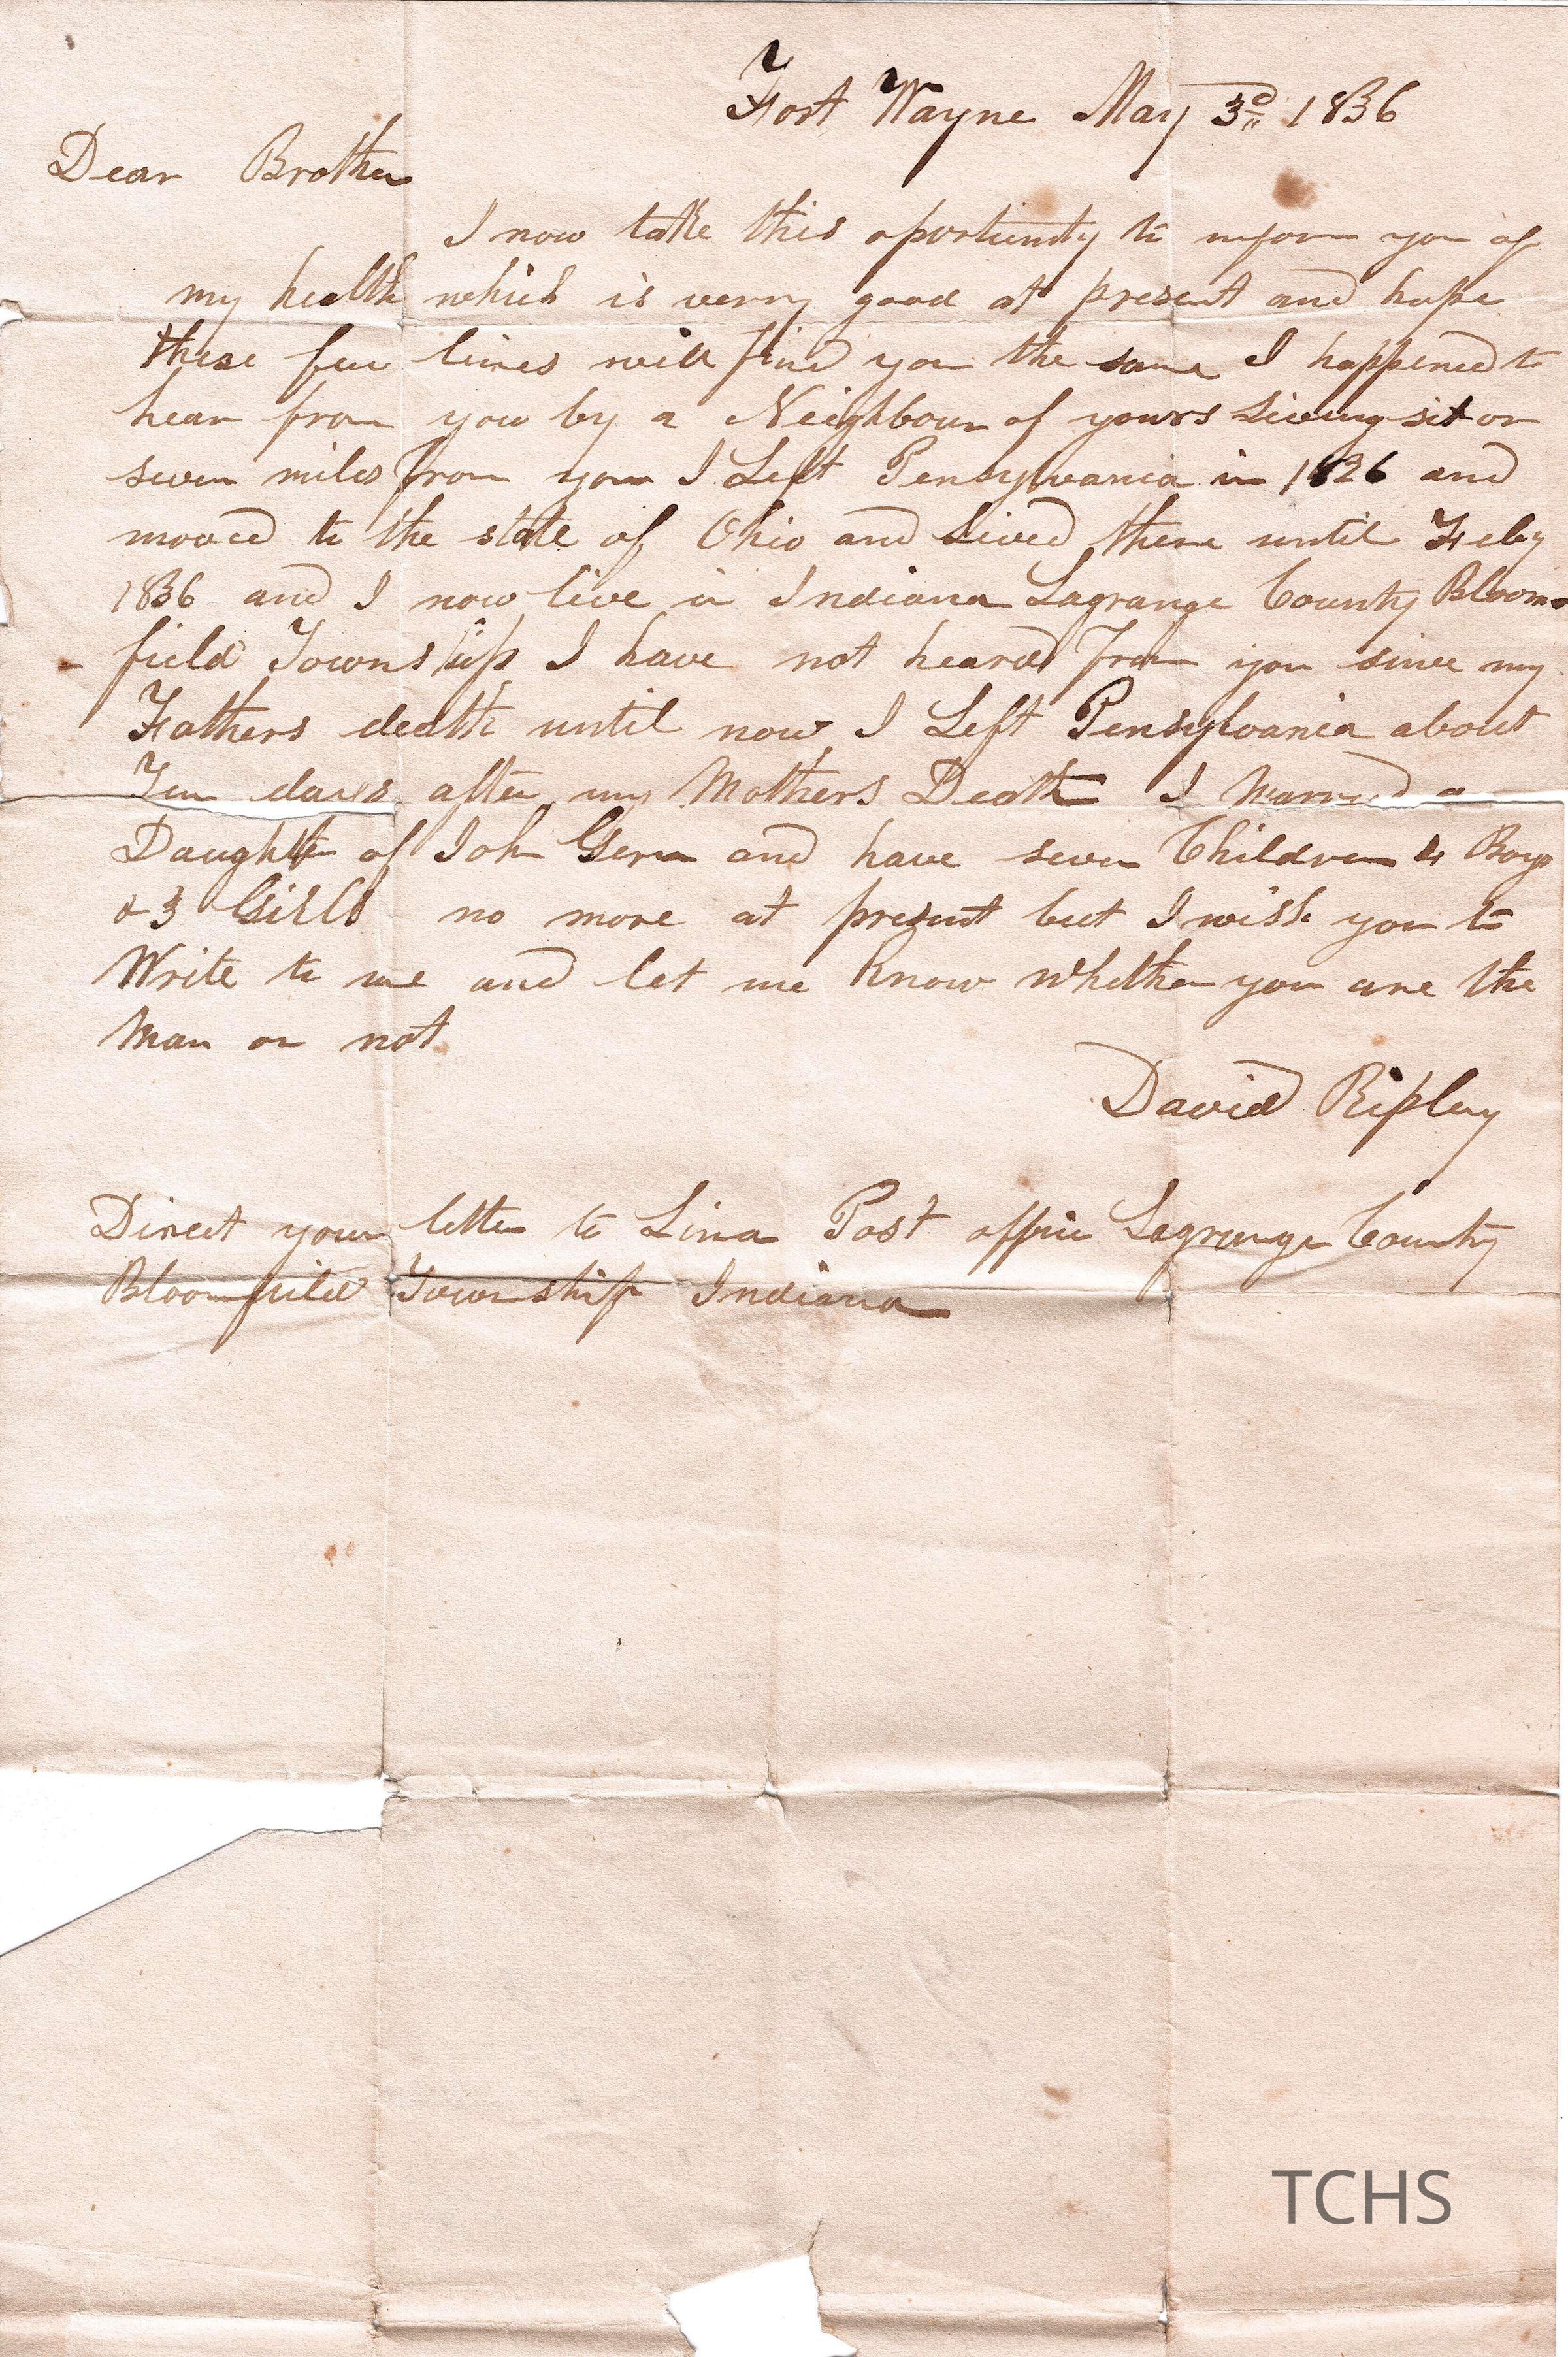 Fort Wayne May 3d 1836
Dear Brother
I now take this oportunity to inform you of
my health which is verry good at present and hope
these few lines will find you the same I happened to
hear from you by a Neighbour of yours Living six or
seven miles from you I Left Pensylvania in 1826 and
moved to the state of Ohio and Lived there until Feby
1836 and I now live in Indiana Lagrange County Bloom=
field Township I have not heard from you since my
Fathers death until now I Left Pensylvania about
Ten days after my Mothers Death I Married a
Daughter of John and have seven Children 4 Boys
& 3 Girls no more at present but I wish you to
Write to me and let me Know whether you are the
Man or not
David Ripley
Direct your letter to Lima Post office Lagrange County
Bloomfield Township Indiana
TCHS